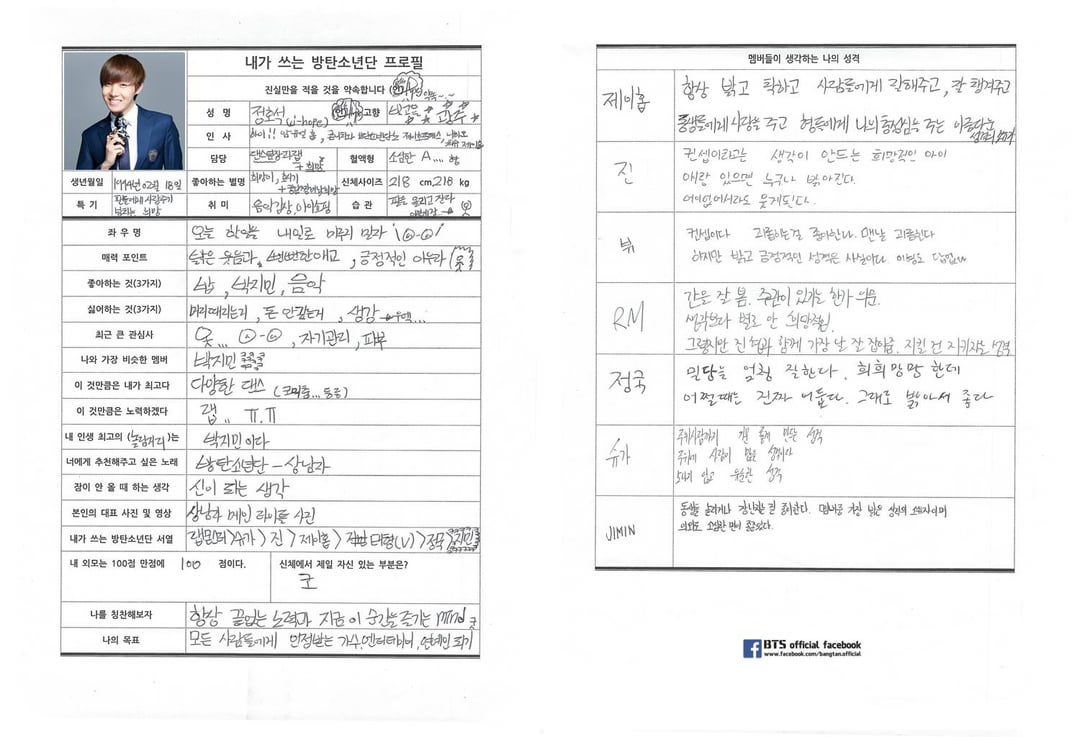 내가 쓰는 방탄소년단 프로필
진실만을 적을 것을 약속합니다
성 명 정호석 (j-hope) 고향 광주
인 사
담당 혈액형 소심한 A....형
생년월일 1994년 02월 18일 좋아하는 별명 희망이, 신체사이즈 218 cm, 218 kg
특 기 취 미 음악감상, 아이쇼핑 습 관
좌 우 명 오늘 할일을 내일로 미루지 말자
매력 포인트 밝은 웃음과, 뻔뻔한 애교, 긍정적인 아우라
좋아하는 것(3가지) 밥, 박지민, 음악
싫어하는 것(3가지) 머리때리는거, 돈 안갚는거, 생강
최근 큰 관심사 옷... , 자기관리, 피부
나와 가장 비슷한 멤버 박지민
이 것만큼은 내가 최고다 다양한 댄스
이 것만큼은 노력하겠다 랩,, ㅠ.ㅠ
내 인생 최고의 (놀림거리)는 박지민이다
너에게 추천해주고 싶은 노래 방탄소년단 - 상남자
잠이 안 올 때 하는 생각 신이 되는 생각
본인의 대표 사진 및 영상 상남자 메인 타이틀 사진
내가 쓰는 방탄소년단 서열 랩몬 > 슈가 > 진 > 제이홉 > 태형(V) > 정국 > 지민
내 외모는 100점 만점에 100 점이다. 신체에서 제일 자신 있는 부분은?
코
나를 칭찬해보자 항상 끝없는 노력과 지금 이 순간을 즐기는 mind 굿
나의 목표 모든 사람들에게 인정받는 가수, 엔터테이너, 연예인 되기
멤버들이 생각하는 나의 성격
제이홉 항상 밝고 착하고 사람들에게 잘해주고, 잘 챙겨주고
동생들에게 사랑을 주고 형들에게 나의 충성심을 주는 아름다운
진 컨셉이라는 생각이 안드는 희망적인 아이
얘랑 있으면 누구나 밝아진다.
어이없어서라도 웃게된다.
뷔 컨셉이다 괴롭히는걸 좋아한다. 맨날 괴롭힌다
하지만 밝고 긍정적인 성격은 사실이다.
RM 간을 잘 봄. 주관이 있기는 한가 의문.
생각보다 별로 안 희망적임.
그렇지만 진형과 함께 가장 날 잘 잡아줌. 지킬 건 지키자는 성격
정국 밀당을 엄청 잘한다. 희희망망 한데
어쩔때는 진짜 어둡다. 그래도 밝아서 좋다
슈가 주위사람까지 만드는 성격
주위에 사람이 많은 성격이다
성격
JIMIN 동생들 놀리거나 장난하는 걸 좋아한다. 멤버중 가장 밝은 성격의 소유자이며
의외로 소심한 면이
BTS official facebook
www.facebook.com/bangtan.official